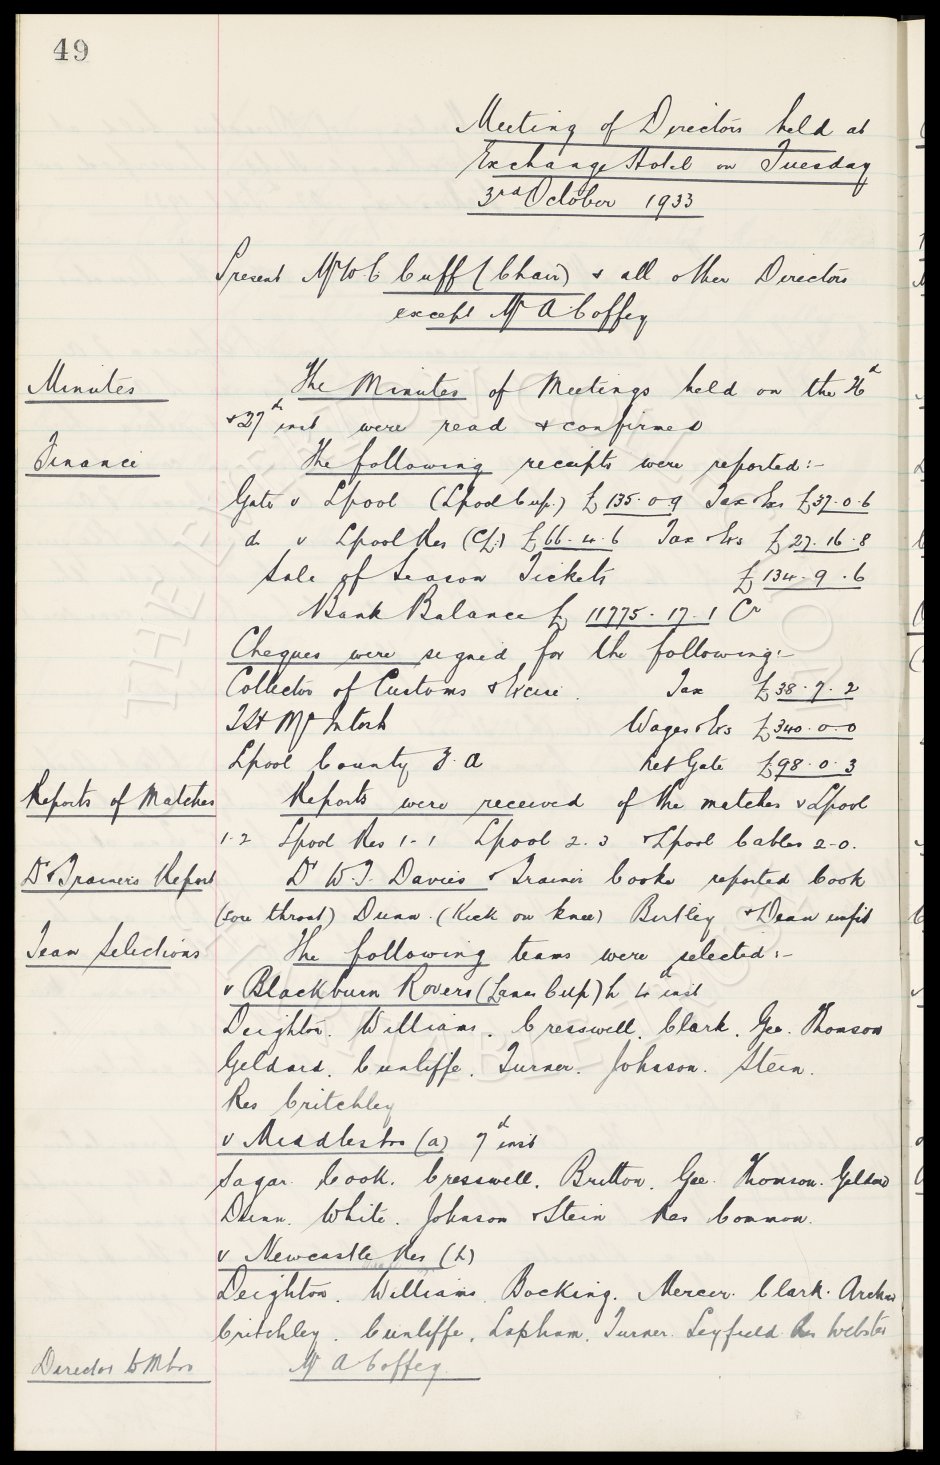 49
Meeting of Directors held at
Exchange Hotel on Tuesday
3rd October 1933
Present Mr W C Cuff (Chair) & all other Directors
except Mr A Coffey
Minutes
The Minutes of Meetings held on the 26th
& 27th inst were read & confirmed
Finance
The following receipts were reported:-
Gate v Lpool (Lpool Cup.) £135.0.9 Tax &rs £37.0.6
do v Lpool Res (CL.) £66.4.6 Tax &rs £27.16.8
Sale of Season Tickets £134.9.6
Bank Balance £11775.17.1 Cr
Cheques were signed for the following:-
Collector of Customs & Excise. Tax £38.7.2
T H McIntosh Wages &rs £340.0.0
Lpool County F.A Net Gate £98.0.3
Reports of Matches
Reports were received of the matches v Lpool
1-2 Lpool Res 1-1 Lpool 2.3 & Lpool Cables 2-0.
Dr & Trainers Report
Dr W.J. Davies & Trainer Cooke reported Cook
(sore throat) Dunn. (Kick on knee) Birtley & Dean unfit
Team Selections
The following teams were selected:-
v Blackburn Rovers (Lancs Cup) h 4th inst
Deighton. Williams. Cresswell. Clark. Gee. Thomson
Geldard. Cunliffe. Turner. Johnson. Stein.
Res Critchley
v Middlesbro (a) 7th inst
Sagar. Cook. Cresswell. Britton. Gee. Thomson. Geldard
Dunn. White. Johnson & Stein Res Common.
v Newcastle Res (h)
Deighton. Williams. Bocking. Mercer. Clark. Archer
Critchley. Cunliffe. Lapham. Turner. Leyfield Res Webster
Director to Mbro
Mr A Coffey.